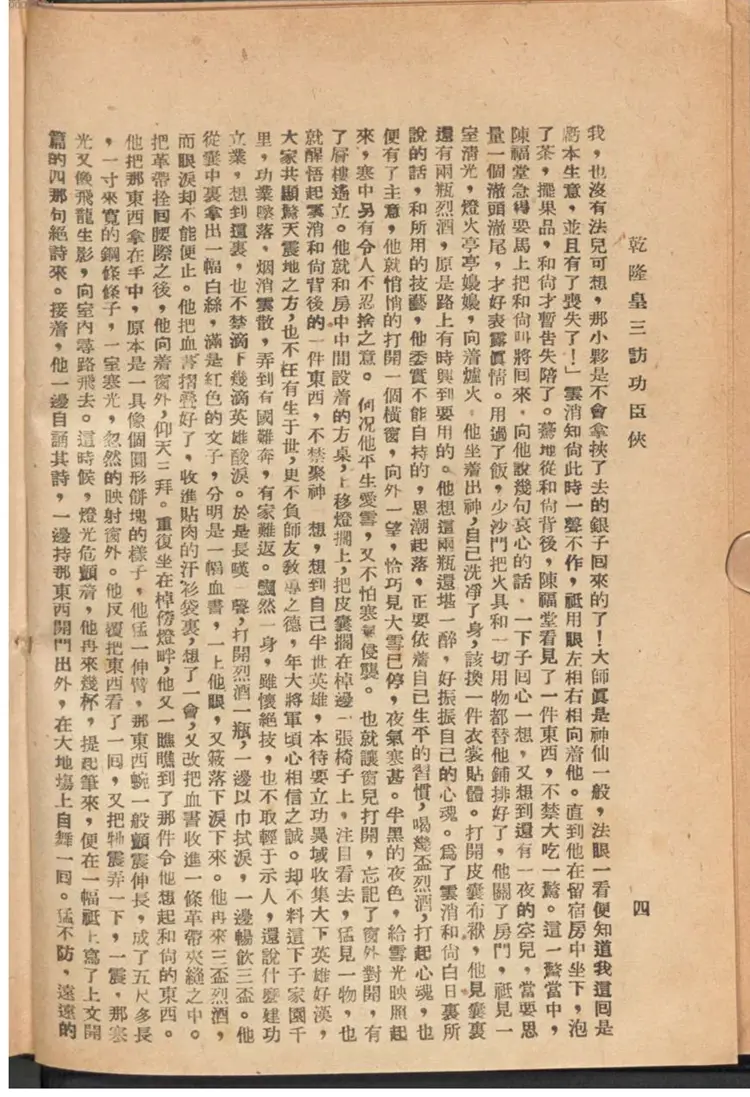 乾隆皇三訪功臣俠
四
我，也沒有法兒可想，那小夥是不會拿挾了去的銀子回來的了！大師眞是神仙一般，法眼一看便知道我這回是
虧本生意，並且有了喪失了！」雲消知尙此時一聲不作，祗用眼左相右相向着他。直到他在留宿房中坐下，泡
了茶，擺果品，和尙才暫吿失陪了。驀地從和尙背後，陳福堂看見了一件東西，不禁大吃一驚。這一驚當中，
陳福堂急得要馬上把和尙叫將回來，向他說幾句哀心的話，一下子回心一想，又想到還有一夜的空兒，當要思
量一個澈頭澈尾，才好表露眞情。用過了飯，少沙門把火具和一切用物都替他鋪排好了，他關了房門，祗見一
室清光，燈火亭亭嫚嫚，向着爐火，他坐着出神，自己洗凈了身，該換一件衣裳貼體。打開皮囊布袱，他見囊裏
還有兩瓶烈酒，原是路上有時興到要用的。他想這兩瓶還堪一醉，好振振自己的心魂。爲了雲消和尙白日裏所
說的話，和所用的技藝，他委實不能自持的，思潮起落，正要依着自己生平的習慣，喝幾盃烈酒，打起心魂，也
便有了主意，他就悄悄的打開一個橫窗，向外一望，恰巧見大雪已停，夜氣寒甚。半黑的夜色，給雪光映照起
來，寒中另有令人不忍捨之意。何况他平生愛雪，又不怕寒氣侵襲。也就讓窗兒打開，忘記了窗外對開，有
了層樓遙立。他就和房中中間設着的方桌，上移燈擱上，把皮囊擱在棹邊一張椅子上，注目看去，猛見一物，也
就醒悟起雲消和尙背後的一件東西，不禁聚神一想，想到自己半世英雄，本待要立功異域收集大下英雄好漢，
大家共顯驚天震地之方，也不枉有生于世，更不負師友敎導之德，年大將軍頃心相信之誠。却不料這下子家園千
里，功業墜落，烟消雲散，弄到有國難奔，有家難返。飄然一身，雖懷絕技，也不取輕于示人，還說什麼建功
立業，想到這裏，也不禁滴下幾滴英雄酸淚。於是長嘆一聲，打開烈酒一瓶，一邊以巾拭淚，一邊暢飲三盃。他
從囊中裏拿出一幅白絲，滿是紅色的文子，分明是一幅血書，一上他眼，又簌落下淚下來。他再來三盃烈酒，
而眼淚却不能便止。他把血書摺疊好了，收進貼肉的汗衫袋裏，想了一會，又改把血書收進一條革帶夾縫之中。
把革帶拴回腰際之後，他向着窗外，仰天三拜。重復坐在棹傍燈畔，他又一瞧瞧到了那件令他想起和尙的東西。
他把那東西拿在手中，原本是一具像個圓形餅塊的樣子，他猛一伸臂，那東西蜿一般顫震伸長，成了五尺多長
，一寸來寬的鋼條條子，一室寒光，忽然的映射窗外。他反覆把東西看了一回，又把牠震弄一下，一震，那寒
光又像飛龍生影，向室內尋路飛去。這時候，燈光危顫着，他再來幾杯，提起筆來，便在一幅祗上寫了上文開
篇的四那句絶詩來。接着，他一邊自誦其詩，一邊持那東西開門出外，在大地塲上自舞一回。猛不防，遠遠的